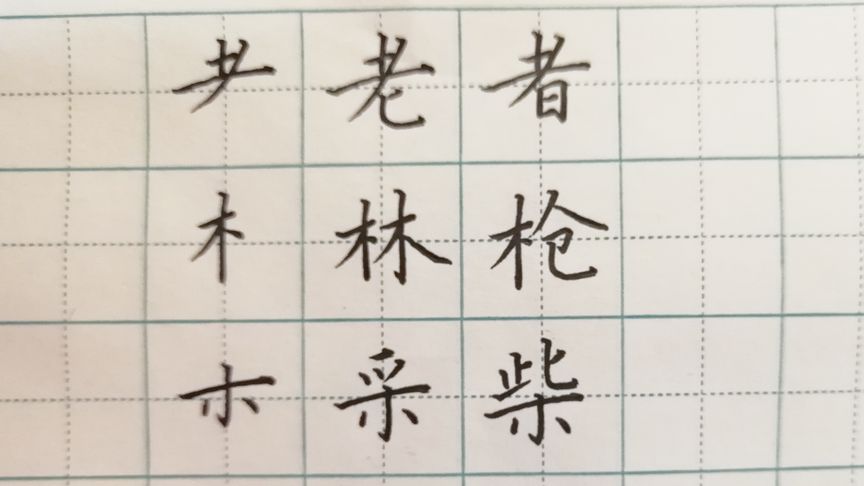 耂老者
木林枪
木采柴